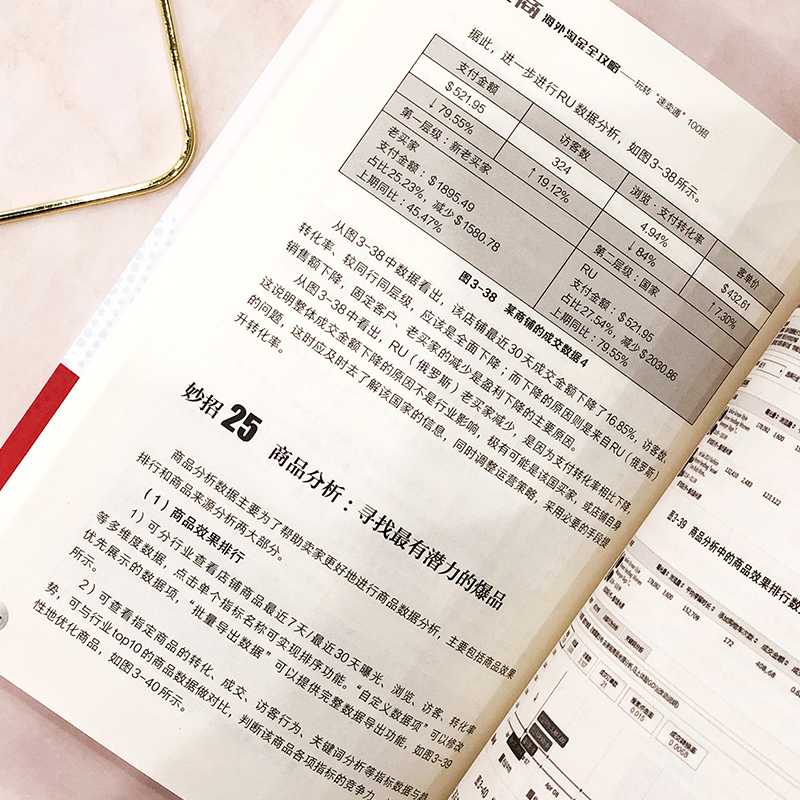 商 海外淘金全攻略——玩转“速卖通”100招
据此，进一步进行RU数据分析，如图3-38所示。
支付金额 访客数 浏览：支付转化率 客单价
$521.95 324 4.94% $432.61
↓79.55% ↑19.12% ↓84% ↑7.30%
第一层级：新老买家 第二层级：国家
老买家 RU
支付金额：$1895.49 支付金额：$521.95
占比25.23%，减少$1580.78 占比27.54%，减少$2030.86
上期同比：45.47% 上期同比：79.55%
图3-38 某商铺的成交数据4
从图3-38中数据看出，该店铺最近30天成交金额下降了16.85%，访客数、
转化率、较同行同层级，应该是全面下降；而下降的原因则是来自RU（俄罗斯）
销售额下降，固定客户、老买家的减少是盈利下降的主要原因。
从图3-38中看出，RU（俄罗斯）老买家减少，是因为支付转化率相比下降，
这说明整体成交金额下降的原因不是行业影响，极有可能是该国买家，或店铺自身
的问题，这时应及时去了解该国家的信息，同时调整运营策略，采用必要的手段提
升转化率。
妙招25 商品分析：寻找最有潜力的爆品
商品分析数据主要为了帮助卖家更好地进行商品数据分析，主要包括商品效果
排行和商品来源分析两大部分。
（1）商品效果排行
1）可分行业查看店铺商品最近7天/最近30天曝光、浏览、访客、转化率
等多维度数据，点击单个指标名称可实现排序功能。“自定义数据项”可以修改
优先展示的数据项，“批量导出数据”可以提供完整数据导出功能，如图3-39
所示。
2）可查看指定商品的转化、成交、访客行为、关键词分析等指标数据与趋
势，可与行业top10的商品数据做对比，判断该商品各项指标的竞争力，
性地优化商品，如图3-40所示。
图3-39 商品分析中的商品效果排行数
图3-40